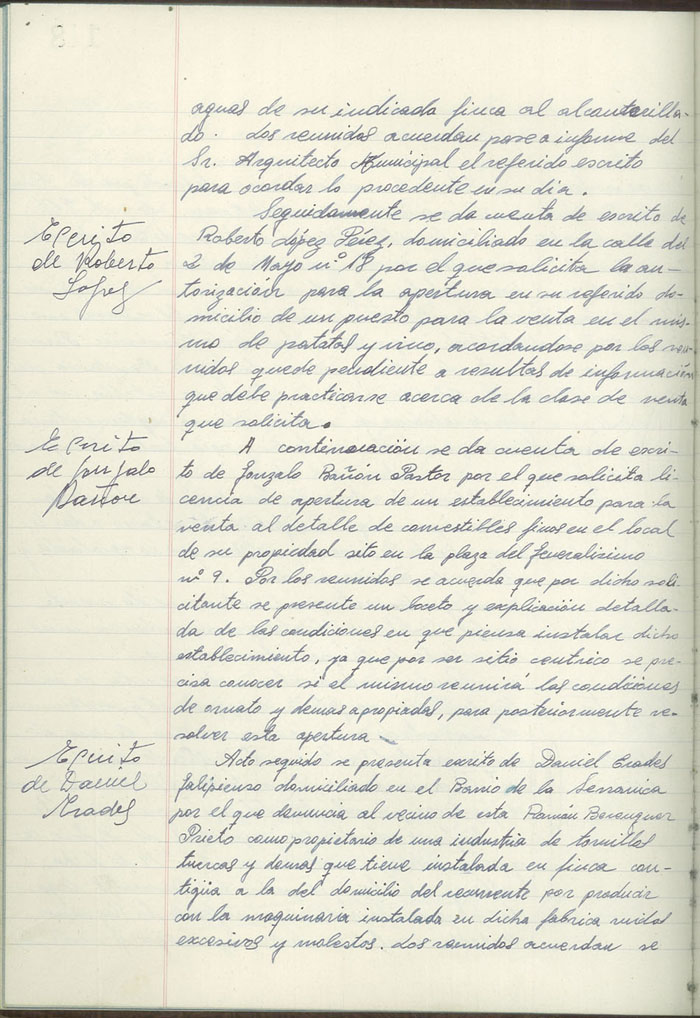 aguas de su indicada finca al alcantarilla-
do. Los reunidos acuerdan pase a informe del
Sr. Arquitecto Municipal el referido escrito
para acordar lo procedente en su dia.
Escrito
de Roberto
Lopez
Seguidamente se da cuenta de escrito de
Roberto López Pérez, domiciliado en la calle del
2 de Mayo nº 18 por el que solicita la au-
torización para la apertura en su referido do-
micilio de un puesto para la venta en el mis-
mo de patatas y vino, acordandose por los reu-
nidos quede pendiente a resultas de información
que debe practicarse acerca de la clase de venta
que solicita.
Escrito
de Gonzalo
Bañon
A continuación se da cuenta de escri-
to de Gonzalo Bañón Pastor por el que solicita li-
cencia de apertura de un establecimiento para la
venta al detalle de comestibles finos en el local
de su propiedad sito en la plaza del Generalisimo
nº 9. Por los reunidos se acuerda que por dicho soli-
citante se presente un boceto y explicación detalla-
da de las condiciones en que piensa instalar dicho
establecimiento, ya que por ser sitio centrico se pre-
cisa conocer si el mismo reunirá las condiciones
de ornato y demas apropiadas, para posteriormente re-
solver esta apertura
Escrito
de Daniel
Crades
Acto seguido se presenta escrito de Daniel Crades
domiciliado en el Barrio de la Serranica
por el que denuncia al vecino de esta Ramón Berenguer
Prieto como propietario de una industria de tornillos
tuercas y demas que tiene instalada en finca con-
tigüa a la del domicilio del recurrente por producir
con la maquinaria instalada en dicha fabrica ruidos
excesivos y molestos. Los reunidos acuerdan se